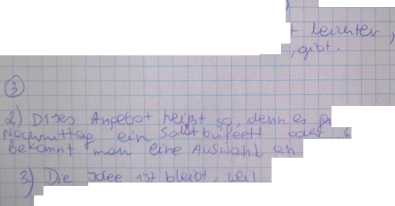 - leichter,
, gibt.
3
2) Dises Angebot heißt so, denn es
Nachmittag ein Salatbufeett oder
bekommt man eine Auswahl an
3) Die Idee ist bleibt, weil